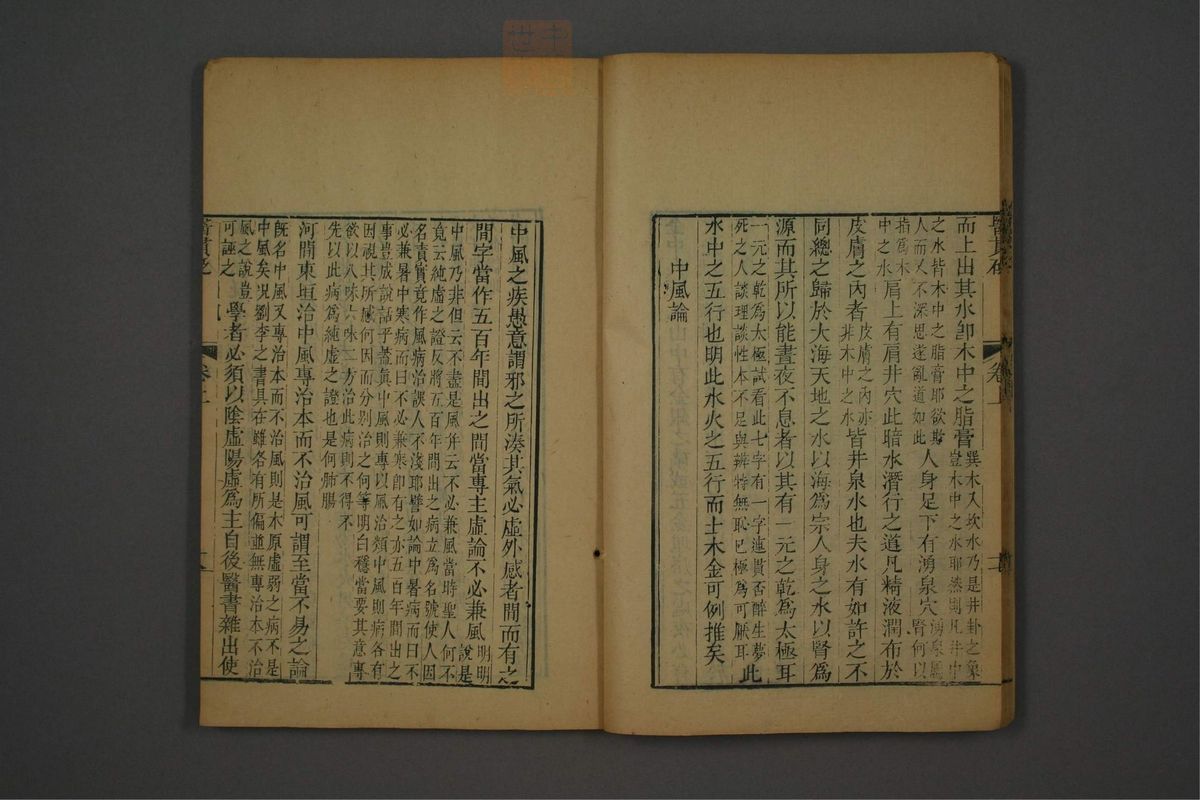 而上出其水卽木中之脂膏巽木入坎水乃是井卦之象
豈木中之水耶然則凡井中
之水皆木中之脂膏耶欲欺
人而又不深思遂亂道如此人身足下有湧泉穴湧泉爲
腎何以
指爲木
中之水肩上有肩井穴此暗水潛行之道凡精液潤布於
皮膚之內者皮膚之內亦
非木中之水皆井泉水也夫水有如許之不
同總之歸於大海天地之水以海爲宗人身之水以腎爲
源而其所以能晝夜不息者以其有一元之乾爲太極耳
一元之乾爲太極試看此七字有一字連貫否醉生夢
死之人談理談性本不足與辨特無恥已極爲可厭耳此
水中之五行也明此水火之五行而土木金可例推矣
中風論
中風之疾愚意謂邪之所湊其氣必虛外感者間而有之
間字當作五百年間出之間當專主虛論不必兼風明明
說是
中風乃非但云不盡是風并云不必兼風當時聖人何不
竟云純虛之證反將五百年間出之病立爲名號使人因
名責實竟作風病治誤人不淺耶譬如論中暑病而曰不
必兼暑中寒病而曰不必兼寒卽有之亦五百年間出之
事豈成說話乎蓋眞中風則專以風治類中風則病各有
因視其所感何因而分別治之何等明白穩當要其意專
欲以八味六味二方治此病則不得不
先以此病爲純虛之證也是何肺腸
河間東垣治中風專治本而不治風可謂至當不易之論
旣名中風又專治本而不治風則是木原虛弱之病不是
中風矣況劉李之書具在雖各有所偏並無專治本不治
風之說豈
可誣之學者必須以陰虛陽虛爲主自後醫書雜出使
醫貫砭
卷上